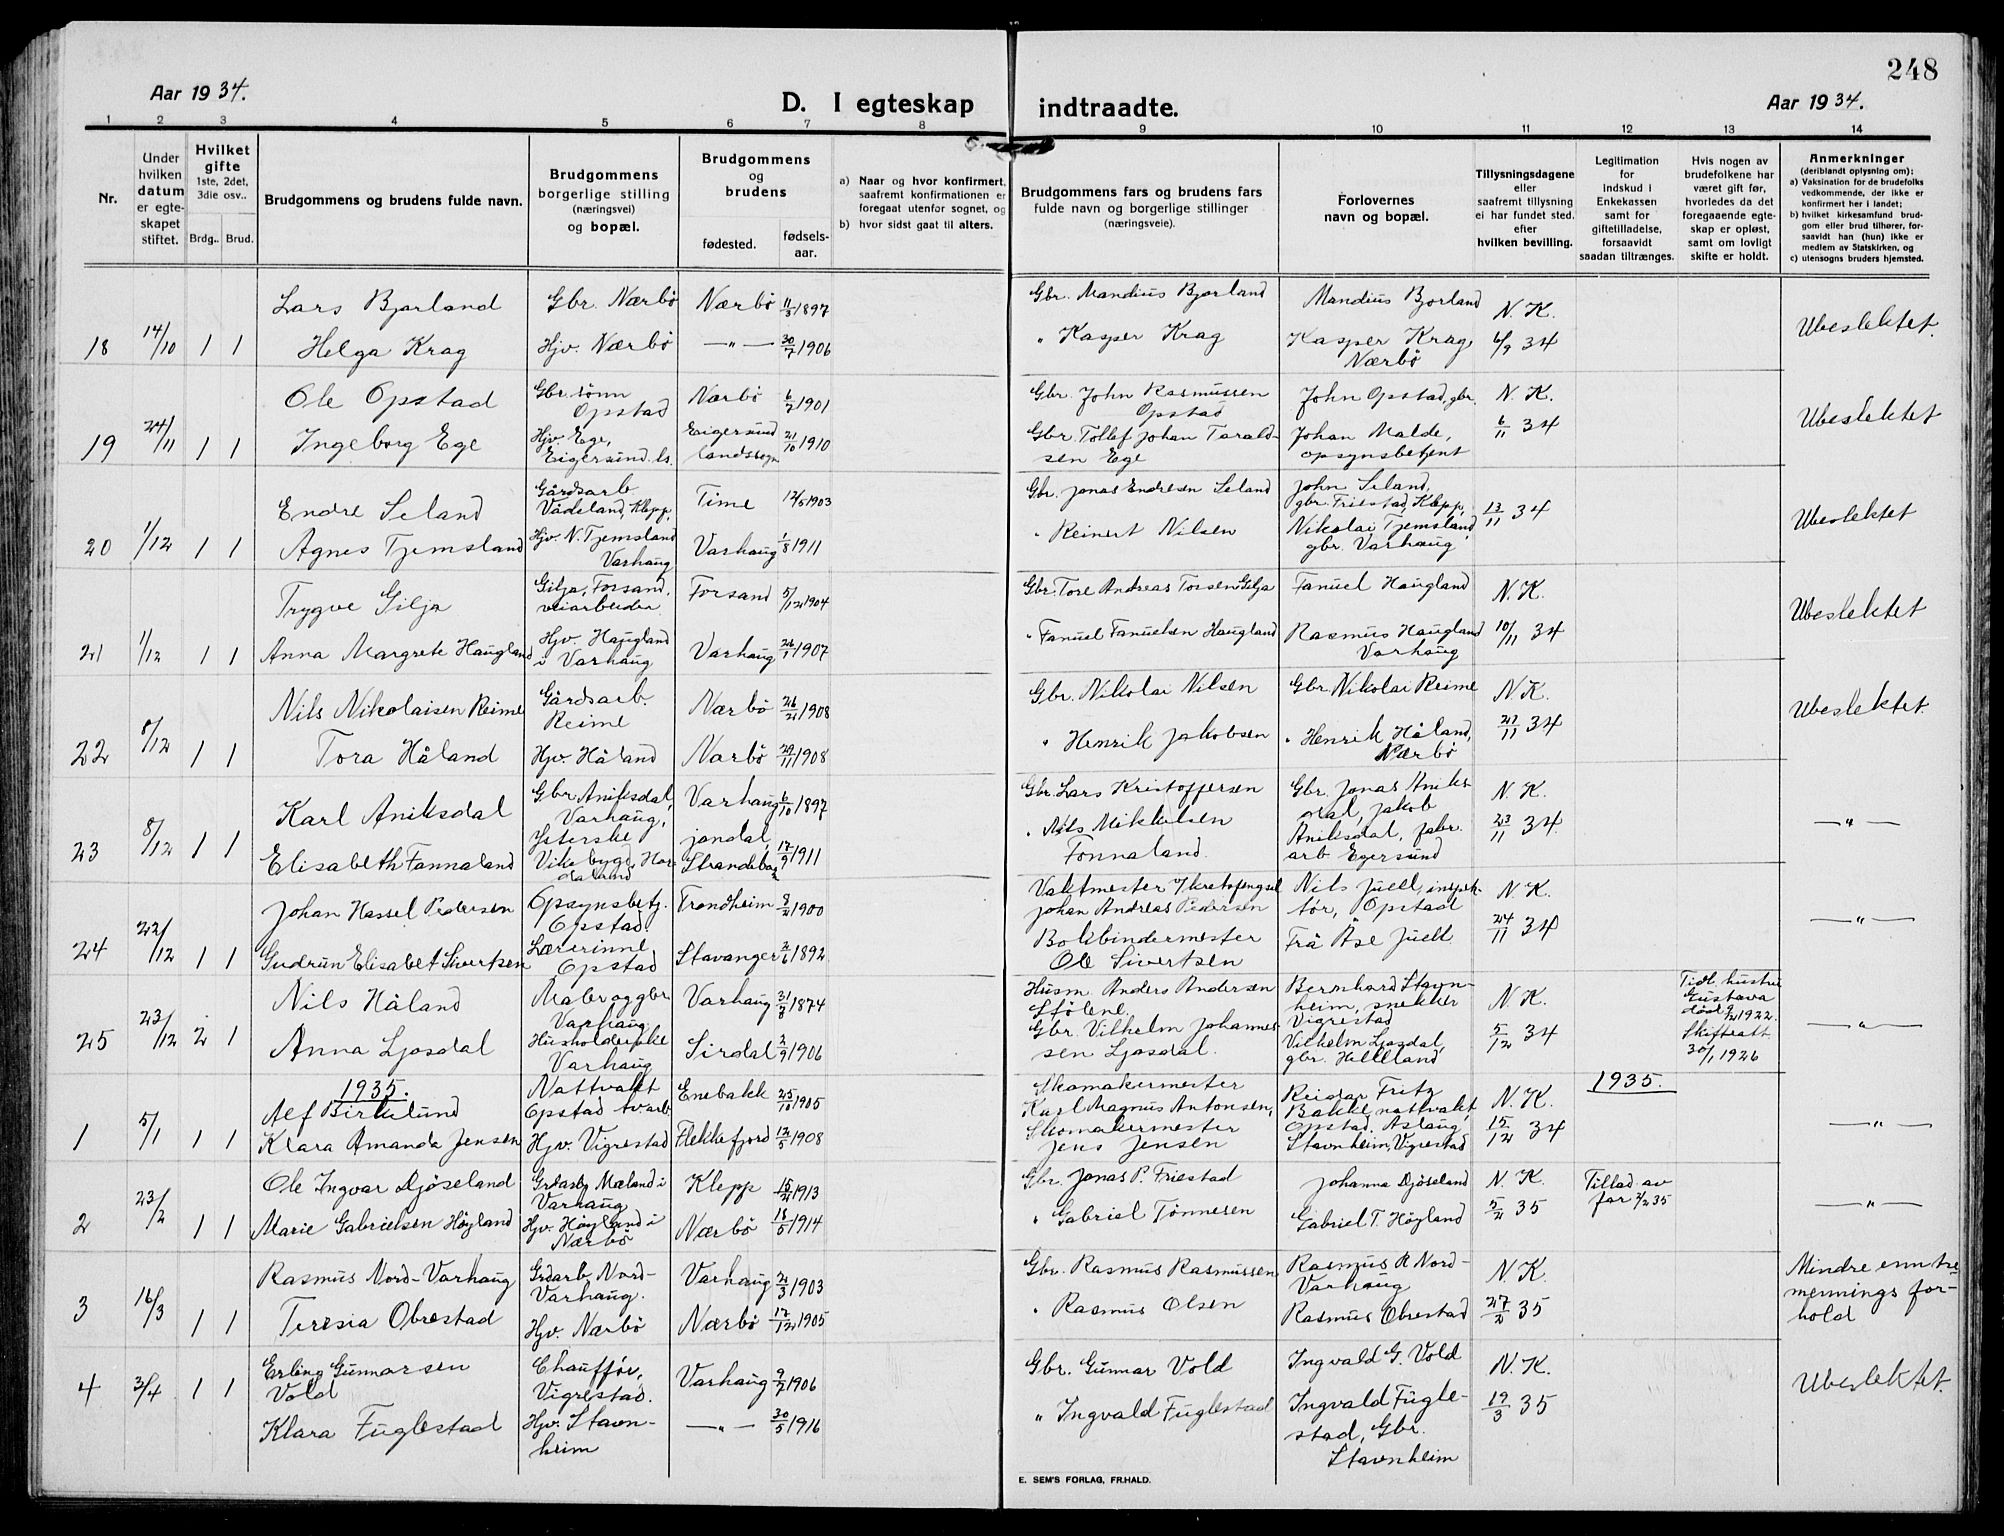 248
Aar 1934.
D. I egteskap indtraadte.
Aar 1934.
1 2 3 4 5 6 7 8 9 10 11 12 13 14
Nr.
Under hvilken datum er egteskapet stiftet.
Hvilket gifte
1ste, 2det, 3die osv..
Brdg.. Brud.
Brudgommens og brudens fulde navn.
Brudgommens borgerlige stilling (næringsvei) og bopæl.
Brudgommens og brudens
fødested.
fødsels-aar.
a) Naar og hvor konfirmert, saafremt konfirmationen er foregaat utenfor sognet, og
b) hvor sidst gaat til alters.
Brudgommens fars og brudens fars fulde navn og borgerlige stillinger (næringsveie).
Forlovernes navn og bopæl.
Tillysningsdagene eller saafremt tillysning ei har fundet sted. efter hvilken bevilling.
Legitimation for Indskud i Enkekassen samt for giftetilladelse, forsaavidt saadan tiltrænges.
Hvis nogen av brudefolkene har været gift før, hvorledes da det foregaaende egteskap er opløst, samt om lovligt skifte er holdt.
Anmerkninger
(deriblandt oplysning om):
a) Vaksination for de brudefolks vedkommende, der ikke er konfirmert her i landet;
b) hvilket kirkesamfund brudgom eller brud tilhører, forsaavidt han (hun) ikke er medlem av Statskirken, og
c) utensogns bruders hjemsted.
18 14/10 1 1
Lars Bjorland Gbr. Nærbö Nærbö 11/3 1897 Gbr. Mandius Bjorland Mandius Bjorland N. K.
Helga Krag Hjv. Nærbö —"— 30/7 1906 " Kasper Krag Kasper Krag, Nærbö 6/9 34 Ubeslektet.
19 24/11 1 1
Ole Opstad Gbr.sönn Opstad Nærbö 6/7 1901 Gbr. John Rasmussen Opstad John Opstad, gbr. N. K.
Ingeborg Ege Hjv. Ege, Eigersund ls. Eigersund landssogn 21/10 1910 Gbr. Tollef Johan Taraldsen Ege Johan Malde, opsynsbetjent 6/11 34 Ubeslektet
20 1/12 1 1
Endre Seland Gårdsarb Vådeland, Klepp, Time 12/5 1903 Gbr. Jonas Endresen Seland John Seland, gbr. Friestad, Klepp,
Agnes Tjemsland Hjv. N. Tjemsland Varhaug Varhaug 1/8 1911 " Reinert Nilsen Nikolai Tjemsland gbr. Varhaug 13/11 34 Ubeslektet
21 1/12 1 1
Trygve Gilja Gilja, Forsand, veiarbeider Forsand 5/12 1904 Gbr. Tore Andreas Torsen Gilja Fanuel Haugland N. K.
Anna Margrete Haugland Hjv. Haugland i Varhaug Varhaug 26/1 1907 " Fanuel Fanuelsen Haugland Rasmus Haugland Varhaug 10/11 34 Ubeslektet
22 8/12 1 1
Nils Nikolaisen Reime Gårdsarb. Reime Nærbö 26/2 1908 Gbr. Nikolai Nilsen Gbr. Nikolai Reime N. K.
Tora Håland Hjv. Håland Nærbö 29/11 1908 " Henrik Jakobsen " Henrik Håland, Nærbö 21/11 34 Ubeslektet.
23 8/12 1 1
Karl Aniksdal Gbr. Aniksdal, Varhaug, Varhaug 6/10 1897 Gbr. Lars Kristoffersen Gbr. Jonas Aniksdal, Jakob N. K.
Elisabeth Fannaland Vikebygd, Hordaland Strandebarm 17/9 1911 " Nils Mikkelsen Fonnaland. Aniksdal, fabr. arb Egersund 23/11 34 —"—
24 22/12 1 1
Johan Hassel Pedersen Opsynsbetj. Opstad. Trondheim 8/2 1900 Vaktmester v/kretsfengsel Johan Andreas Pedersen Nils Juell, inspektör, Opstad N. K.
Gudrun Elisabet Sivertsen Lærerinne Opstad Stavanger 2/6 1892 Bokbindermester Ole Sivertsen Fru Åse Juell 24/11 34 —"—
25 23/12 2 1
Nils Håland Maler og gbr Varhaug Varhaug 31/3 1874 Husm. Anders Andersen Stölene. Bernhard Stavnheim, snekker Vigrestad N. K. Tidl. hustru Gustava död 9/2 1922. Skifteatt 30/1 1926
Anna Ljosdal Husholderske Varhaug Sirdal 2/9 1906 Gbr. Vilhelm Johannessen Ljosdal. Vilhelm Ljosdal, gbr. Helleland 5/12 34 —"—
1935. 1935.
1 5/1 1 1
Alf Birkelund Nattvakt Opstad tv.arb Enebakk 25/10 1905 Skomakermester Karl Magnus Antonsen, Reidar Fritz Bakke, nattvakt, N. K.
Klara Amanda Jensen Hjv. Vigrestad Flekkefjord 12/5 1908 Skomakermester Jens Jensen Opstad. Aslaug Stavnheim, Vigrestad 15/12 34 —"—
2 23/2 1 1
Ole Ingvar Djöseland Grdarb. Mæland i Varhaug Klepp 15/2 1913 Gbr. Jonas P. Friestad Johanna Djöseland N. K. Tillad. av far 2/2 35
Marie Gabrielsen Höyland Hjv. Höyland i Nærbö Nærbö 18/5 1914 " Gabriel Tönnesen Gabriel T. Höyland 5/2 35 —"—
3 16/3 1 1
Rasmus Nord-Varhaug Grdarb. Nord-Varhaug. Varhaug 21/3 1903 Gbr. Rasmus Rasmussen Rasmus R Nord-Varhaug N. K. Mindre enn tremennings forhold
Teresia Obrestad Hjv. Nærbö Nærbö 17/12 1905 " Rasmus Olsen Rasmus Obrestad 27/2 35
4 3/4 1 1
Erling Gunnarsen Vold Chaufför, Vigrestad. Varhaug 9/7 1906 Gbr. Gunnar Vold Ingvald G. Vold N. K. Ubeslektet.
Klara Fuglestad Hjv. Stavnheim —"— 30/5 1916 " Ingvald Fuglestad Ingvald Fuglestad, Gbr. Stavnheim 19/3 35
E. SEM'S FORLAG, FR.HALD.